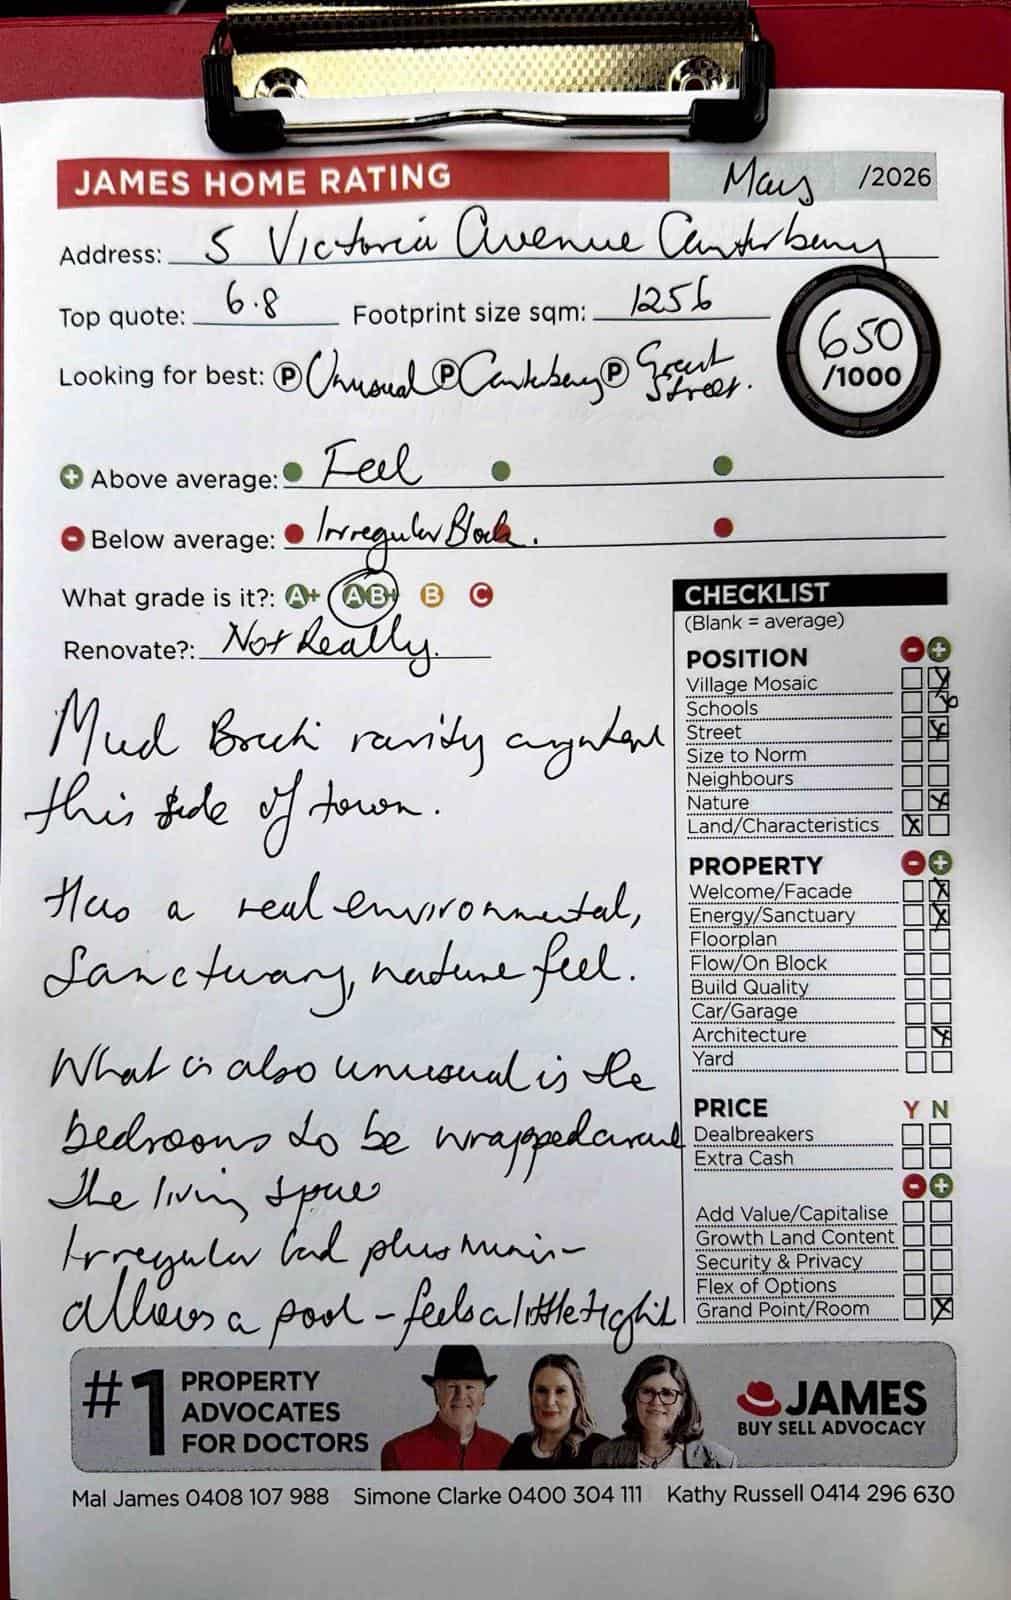 JAMES HOME RATING May /2026
Address: 5 Victoria Avenue Canterbury
Top quote: 6.8 Footprint size sqm: 1256
650
/1000
Looking for best: P Unusual P Canterbury P Great Street.
+ Above average: Feel
- Below average: Irregular Block.
What grade is it?: A+ A B+ B C
Renovate?: Not Really.
Mud Brick rarity anywhere
this side of town.
Has a real environmental,
Sanctuary, nature feel.
What is also unusual is the
bedrooms to be wrapped around
the living space
Irregular land plus minis -
allows a pool - feels a little tight
CHECKLIST
(Blank = average)
POSITION - +
Village Mosaic
Schools
Street
Size to Norm
Neighbours
Nature
Land/Characteristics X
PROPERTY - +
Welcome/Facade X
Energy/Sanctuary X
Floorplan
Flow/On Block
Build Quality
Car/Garage
Architecture
Yard
PRICE Y N
Dealbreakers
Extra Cash
- +
Add Value/Capitalise
Growth Land Content
Security & Privacy
Flex of Options
Grand Point/Room X
#1 PROPERTY
ADVOCATES
FOR DOCTORS
JAMES
BUY SELL ADVOCACY
Mal James 0408 107 988 Simone Clarke 0400 304 111 Kathy Russell 0414 296 630